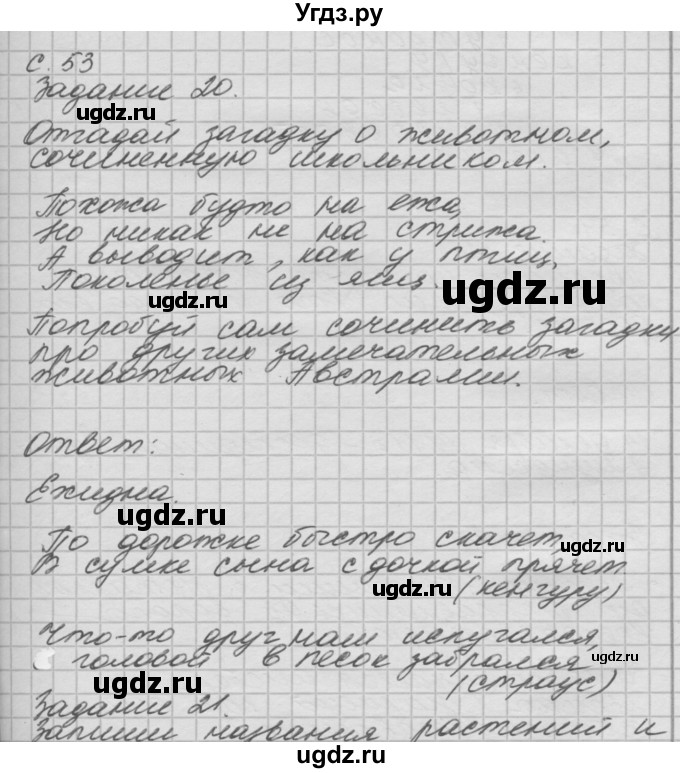 Угдз.ру
с. 53
Задание 20.
ugdz.ru
Отгадай загадку о животном,
сочиненную школьником.
Похожа будто на ежа,
Но никак не на стрижа.
А выводит, как у птиц,
Поколенье из яиц.
ugdz.ru
ugdz.ru
Попробуй сам сочинить загадку
про других замечательных
животных Австралии.
Ответ:
Ехидна.
ugdz.ru
По дорожке быстро скачет,
ugdz.ru
В сумке сына с дочкой прячет
ugdz.ru
(кенгуру)
Что-то друг наш испугался,
головой в песок забрался
ugdz.ru
ugdz.ru
(страус)
Задание 21.
Запиши названия растений и
ugdz.ru